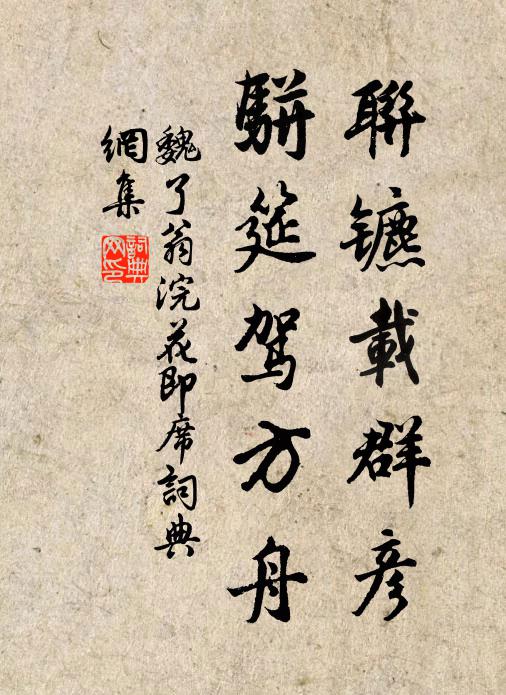 聯镳載群彦
駢筵駕方舟
魏了翁浣花即席詞典
網集
詞典網印